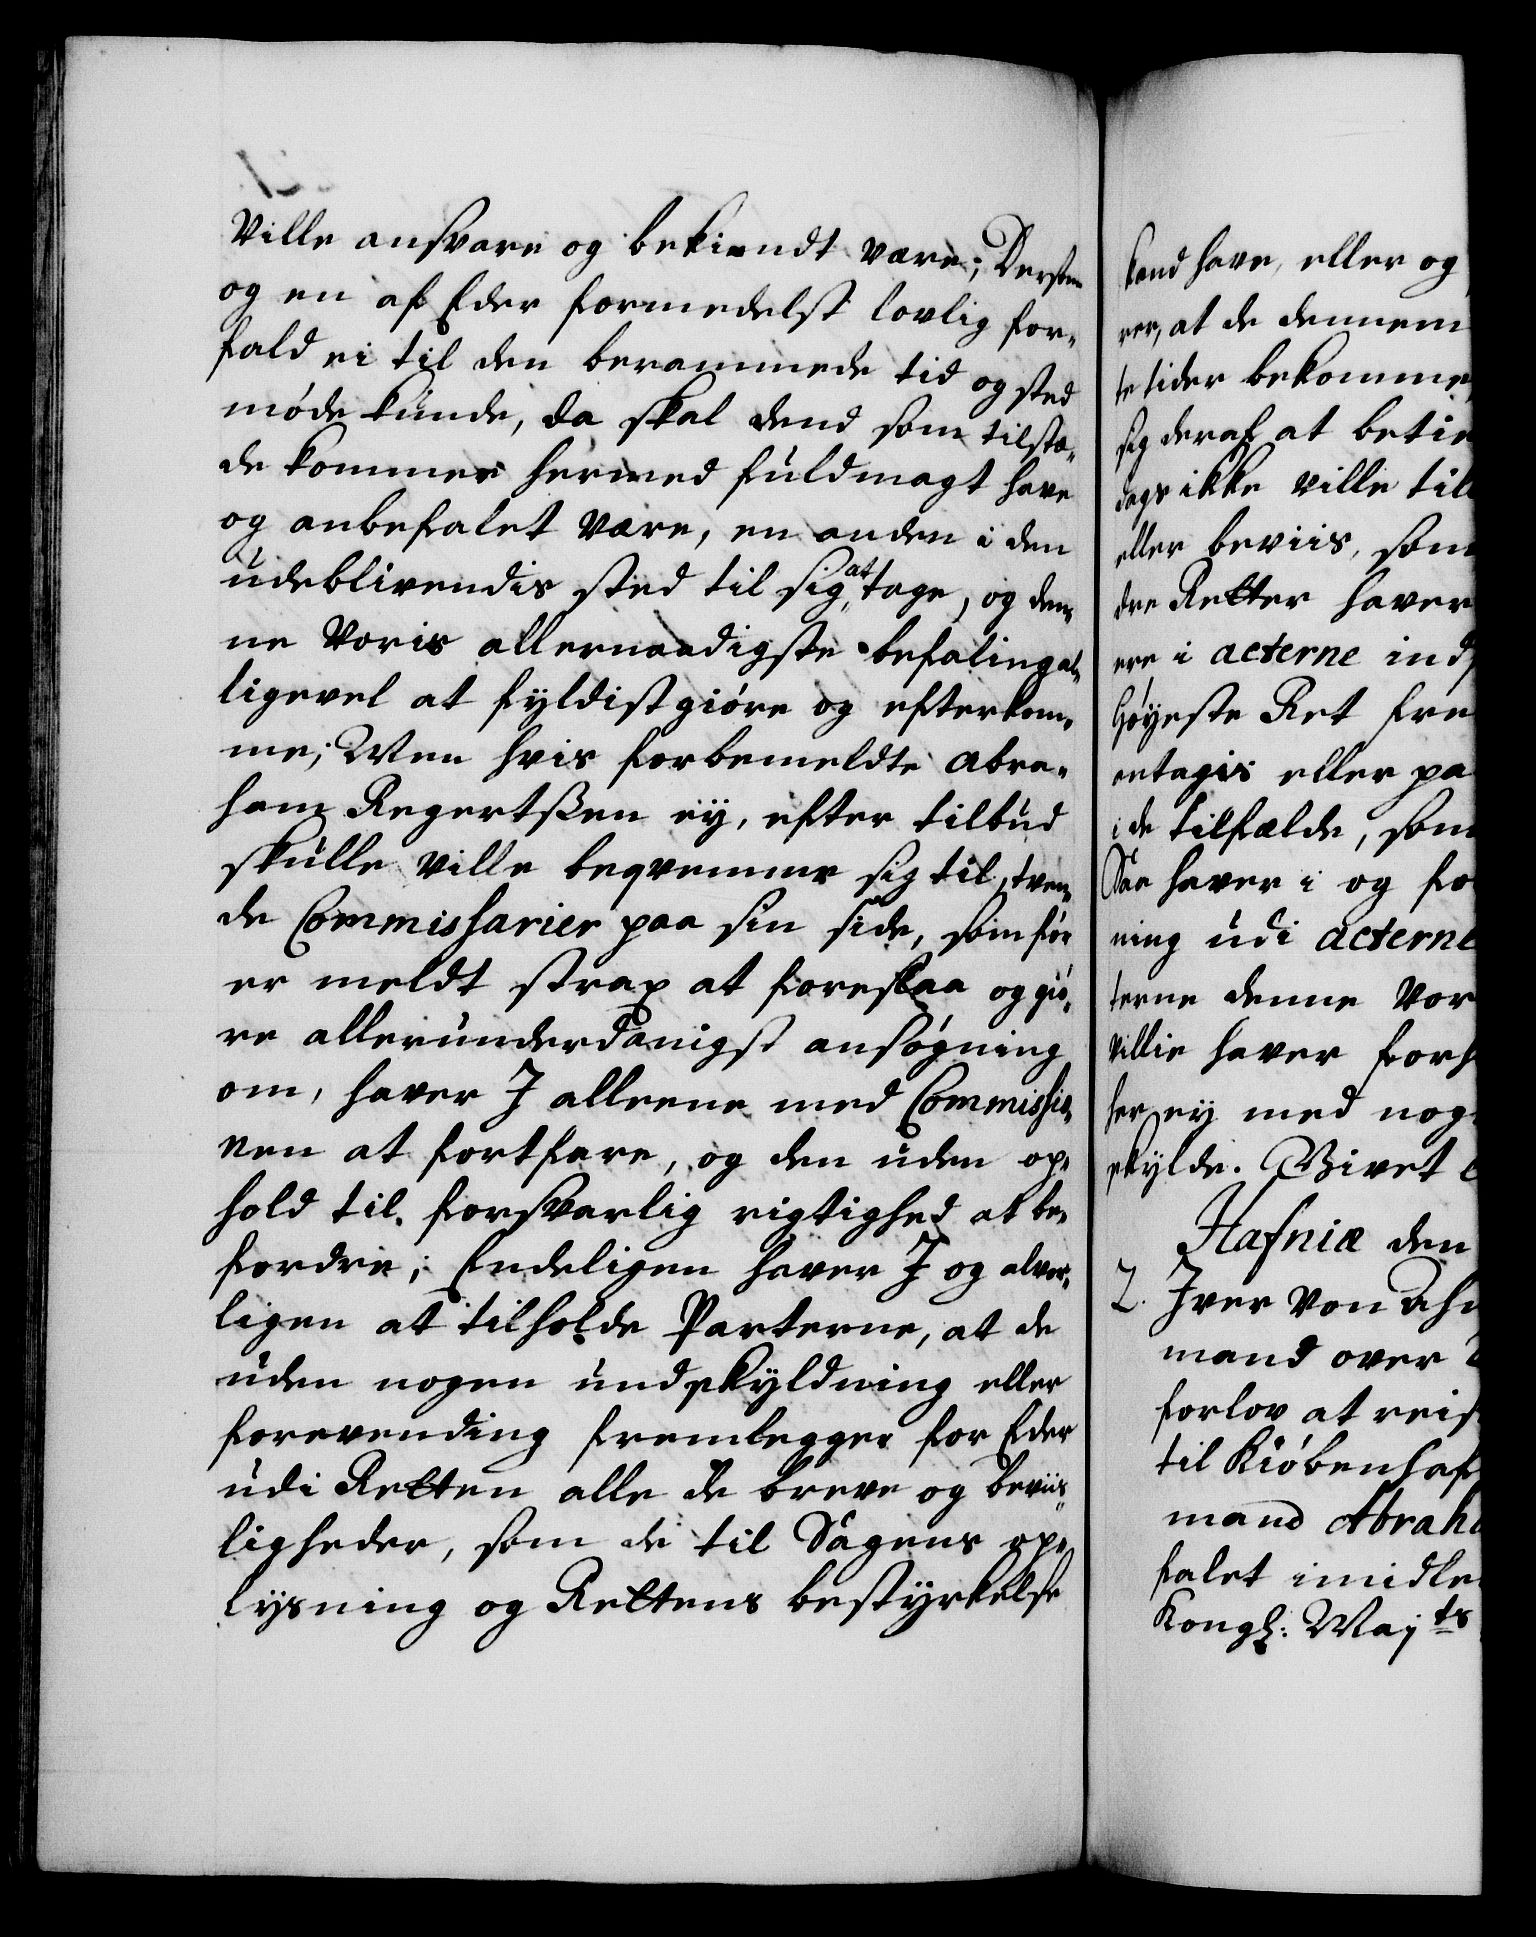 Ville ansvare og bekiendt være; Dersom
og en af Eder formedelst lovlig for-
fald ei til den berammede tid og sted
møde kunde, da skal dend som tilstæ-
de kommer hermed fuldmagt have
og anbefalet være, en anden i den
udeblivendis sted til sig at tage, og den-
ne Voris allernaadigste befaling al-
ligevel at fyldistgiøre og efterkom-
me; Men hvis forbemeldte Abra-
ham Regertssen ey, efter tilbud
skulle ville beqvemme sig til, tven-
de Commissarier paa sin side, som før
er meldt strax at foreslaa og giø-
re allerunderdanigst ansøgning
om, haver J alleene med Commissio-
nen at fortfare, og den uden op-
hold til forsvarlig rigtighed at be-
fordre; Endeligen haver J og alvor-
ligen at tilholde Parterne, at de
uden nogen undskyldning eller
forevending fremlegger for Eder
udi Retten alle de breve og beviis-
ligheder, som de til Sagens op-
lysning og Rettens bestyrkelse
kand have, eller og
rer, at de dennem
te tider bekomme,
sig deraf at betie
dags ikke ville til
eller beviis, som
dre Retter haver
ere i acterne ind
Høyeste Ret fre
antagis eller pa
i de tilfælde, som
Saa haver i og fo
ning udi acterne
terne denne Vor
villie haver forh
her ey med nog
skylde. Givet
Hafniæ den
2. Jver von Ahn
mand over
forlov at reis
til Kiøbenhaf
mand Abraha
falet imidle
Kongl: Majts